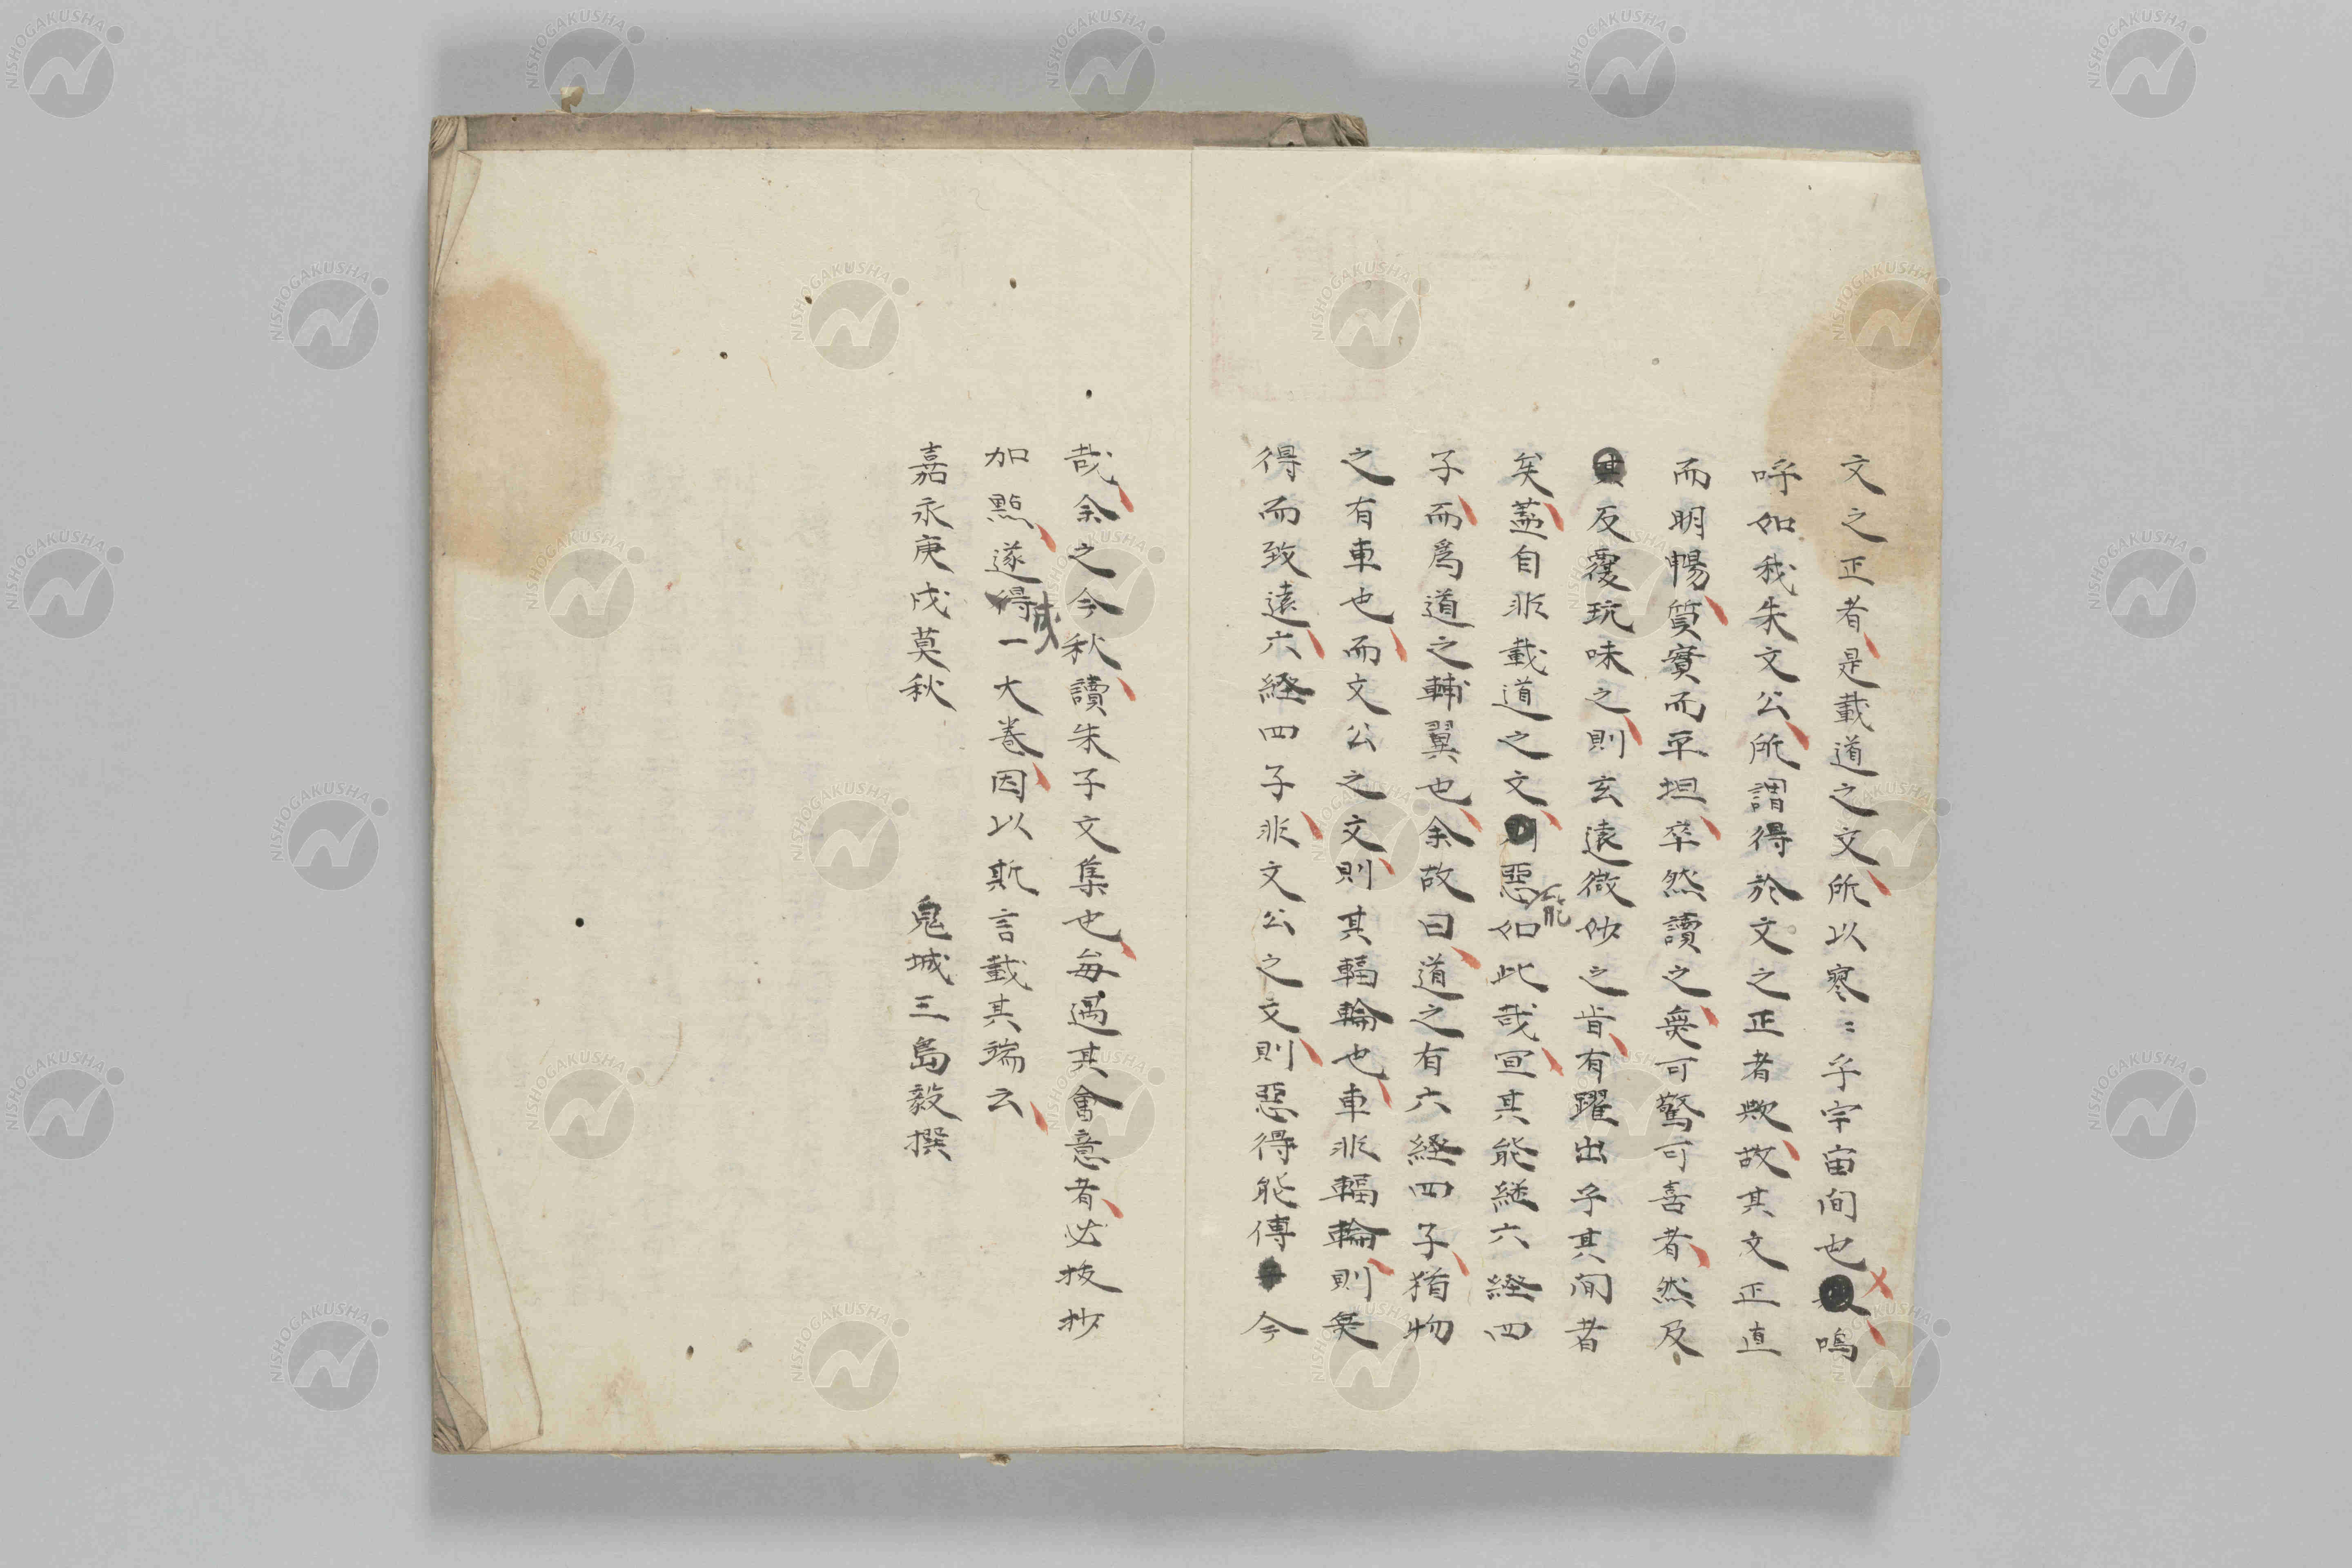 文之正者是載道之文所以寥〻乎宇宙間也嗚
呼如我朱文公所謂得於文之正者歟故其文正直
而明暢質實而平坦卒然讀之無可驚可喜者然及
反覆玩味之則玄遠微妙之旨有躍出乎其間者
矣蓋自非載道之文惡能如此哉宜其能繼六経四
子而爲道之輔翼也余故曰道之有六経四子猶物
之有車也而文公之文則其輻輪也車非輻輪則無
得而致遠六経四子非文公之文則惡得能傳今
哉余之今秋讀朱子文集也每遇其會意者必抜抄
加點遂成一大卷因以斯言載其端云
嘉永庚戌莫秋 鬼城三島毅撰
NISHOGAKUSHA